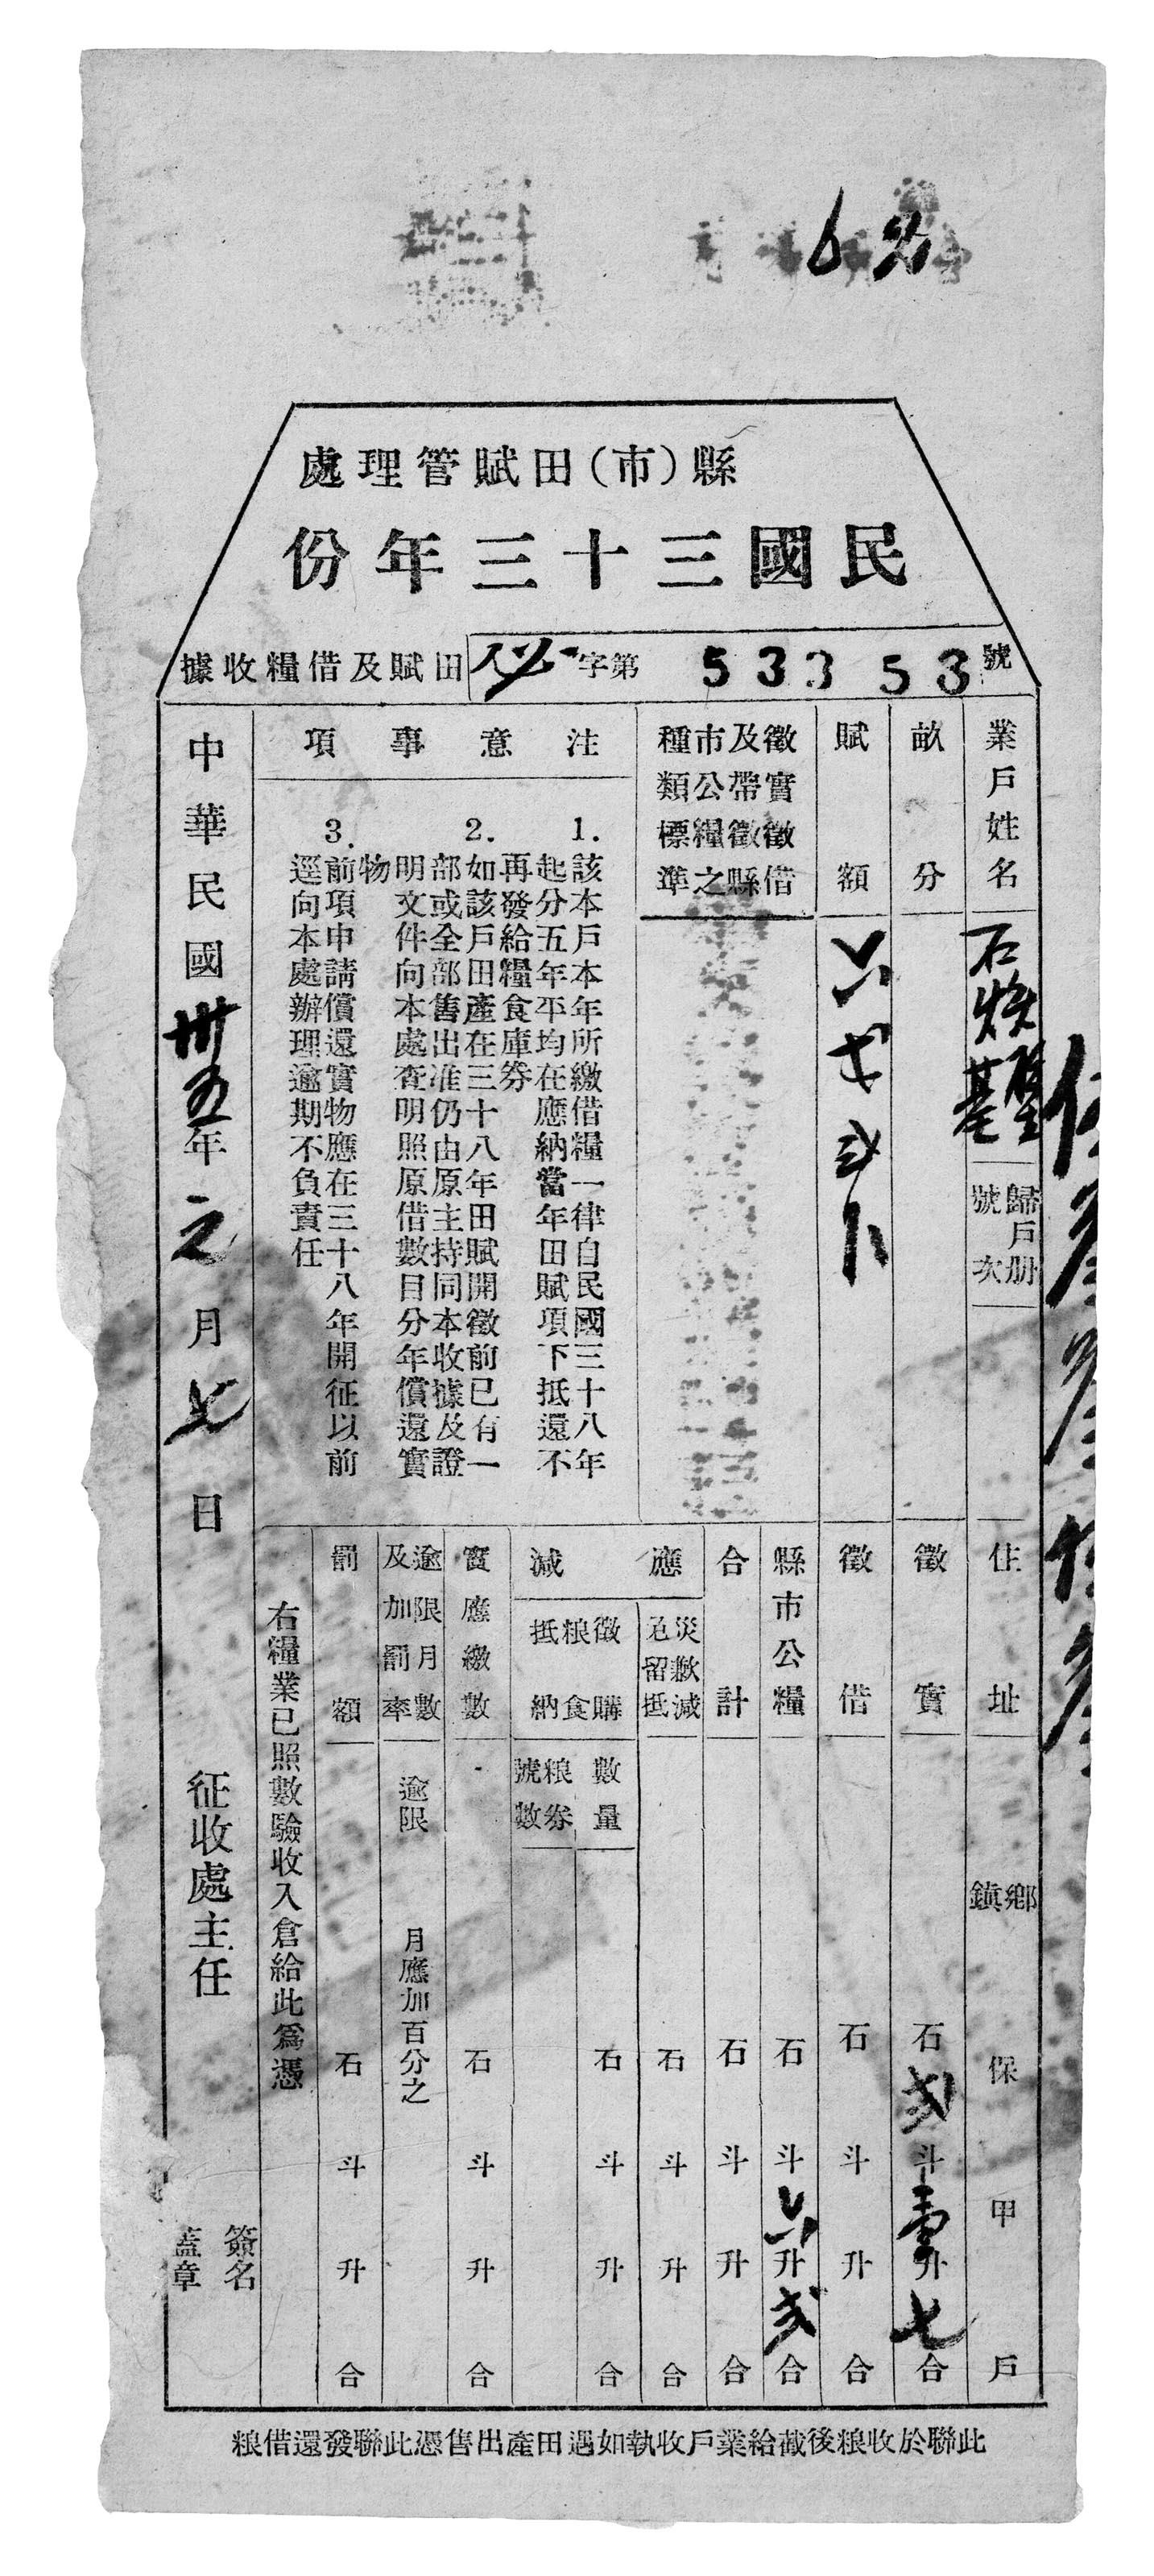 縣(市)田賦管理處
民國三十三年份
田賦及借糧收據
字第 53353 號
業戶姓名
石
基
歸戶册
號次
住址
鄉鎮
保
甲
戶
畝分
徵實
石
弍
斗
壹
升
七
合
賦額
六
弍
徵借
石
斗
升
合
徵實徵借
及帶徵縣
市公糧之
種類標準
縣市公糧
石
斗
六
升
弍
合
合計
石
斗
升
合
應減
災歉減
免留抵
石
斗
升
合
徵購
粮食
抵納
數量
石
斗
升
合
粮券
號數
實應繳數
石
斗
升
合
逾限月數
及加罰率
逾限
月應加百分之
罰額
石
斗
升
合
注意事項
1.
該本戶本年所繳借糧一律自民國三十八年
起分五年平均在應納當年田賦項下抵還不
再發給糧食庫券
2.
如該戶田產在三十八年田賦開徵前已有一
部或全部售出准仍由原主持同本收據及證
明文件向本處查明照原借數目分年償還實
物
3.
前項申請償還實物應在三十八年開征以前
逕向本處辦理逾期不負責任
右糧業已照數驗收入倉給此爲憑
中華民國卅五年元月七日
征收處主任
簽名
蓋章
此聯於收粮後截給業戶收執如遇田產出售憑此聯發還借粮